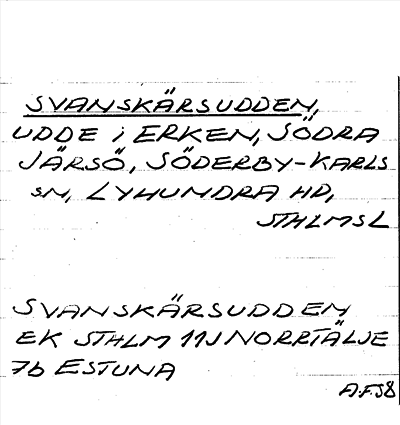 SVANSKÄRSUDDEN,
UDDE i ERKEN, SÖDRA
JÄRSÖ, SÖDERBY-KARLS
SN, LYHUNDRA HD,
STHLMSL
SVANSKÄRSUDDEN
EK STHLM 11J NORRTÄLJE
7b ESTUNA
A.F.58